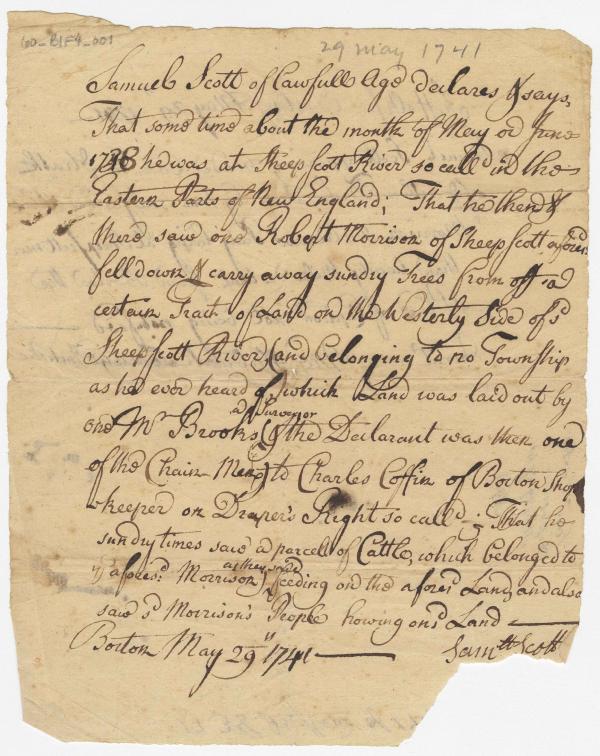 60_B1F4_001
29 May 1741
Samuel Scott of Lawfull Age declares & says,
That some time about the month of May or June
1738 he was at Sheepscott River so call'd in the
Eastern Parts of New England; That he then &
there saw one Robert Morrison of Sheepscott afores.d
fell down & carry away sundry Trees from off a
certain Tract of Land on the Westerly Side of s.d
Sheepscott River (and belonging to no Township
as he ever heard of,) which Land was laid out by
a Surveyor
one Mr Brooks (& the Declarant was then one
of the Chain Men) to Charles Coffin of Boston Shop
keeper on Draper's Right so call'd; That he
sundry times saw a parcell of Cattle, which belonged to
as they said
y.e afores.d Morrison, feeding on the afores.d Land, and also
saw s.d Morrison's People howing on s.d Land
Boston May 29" 1741
Sam.ll Scott